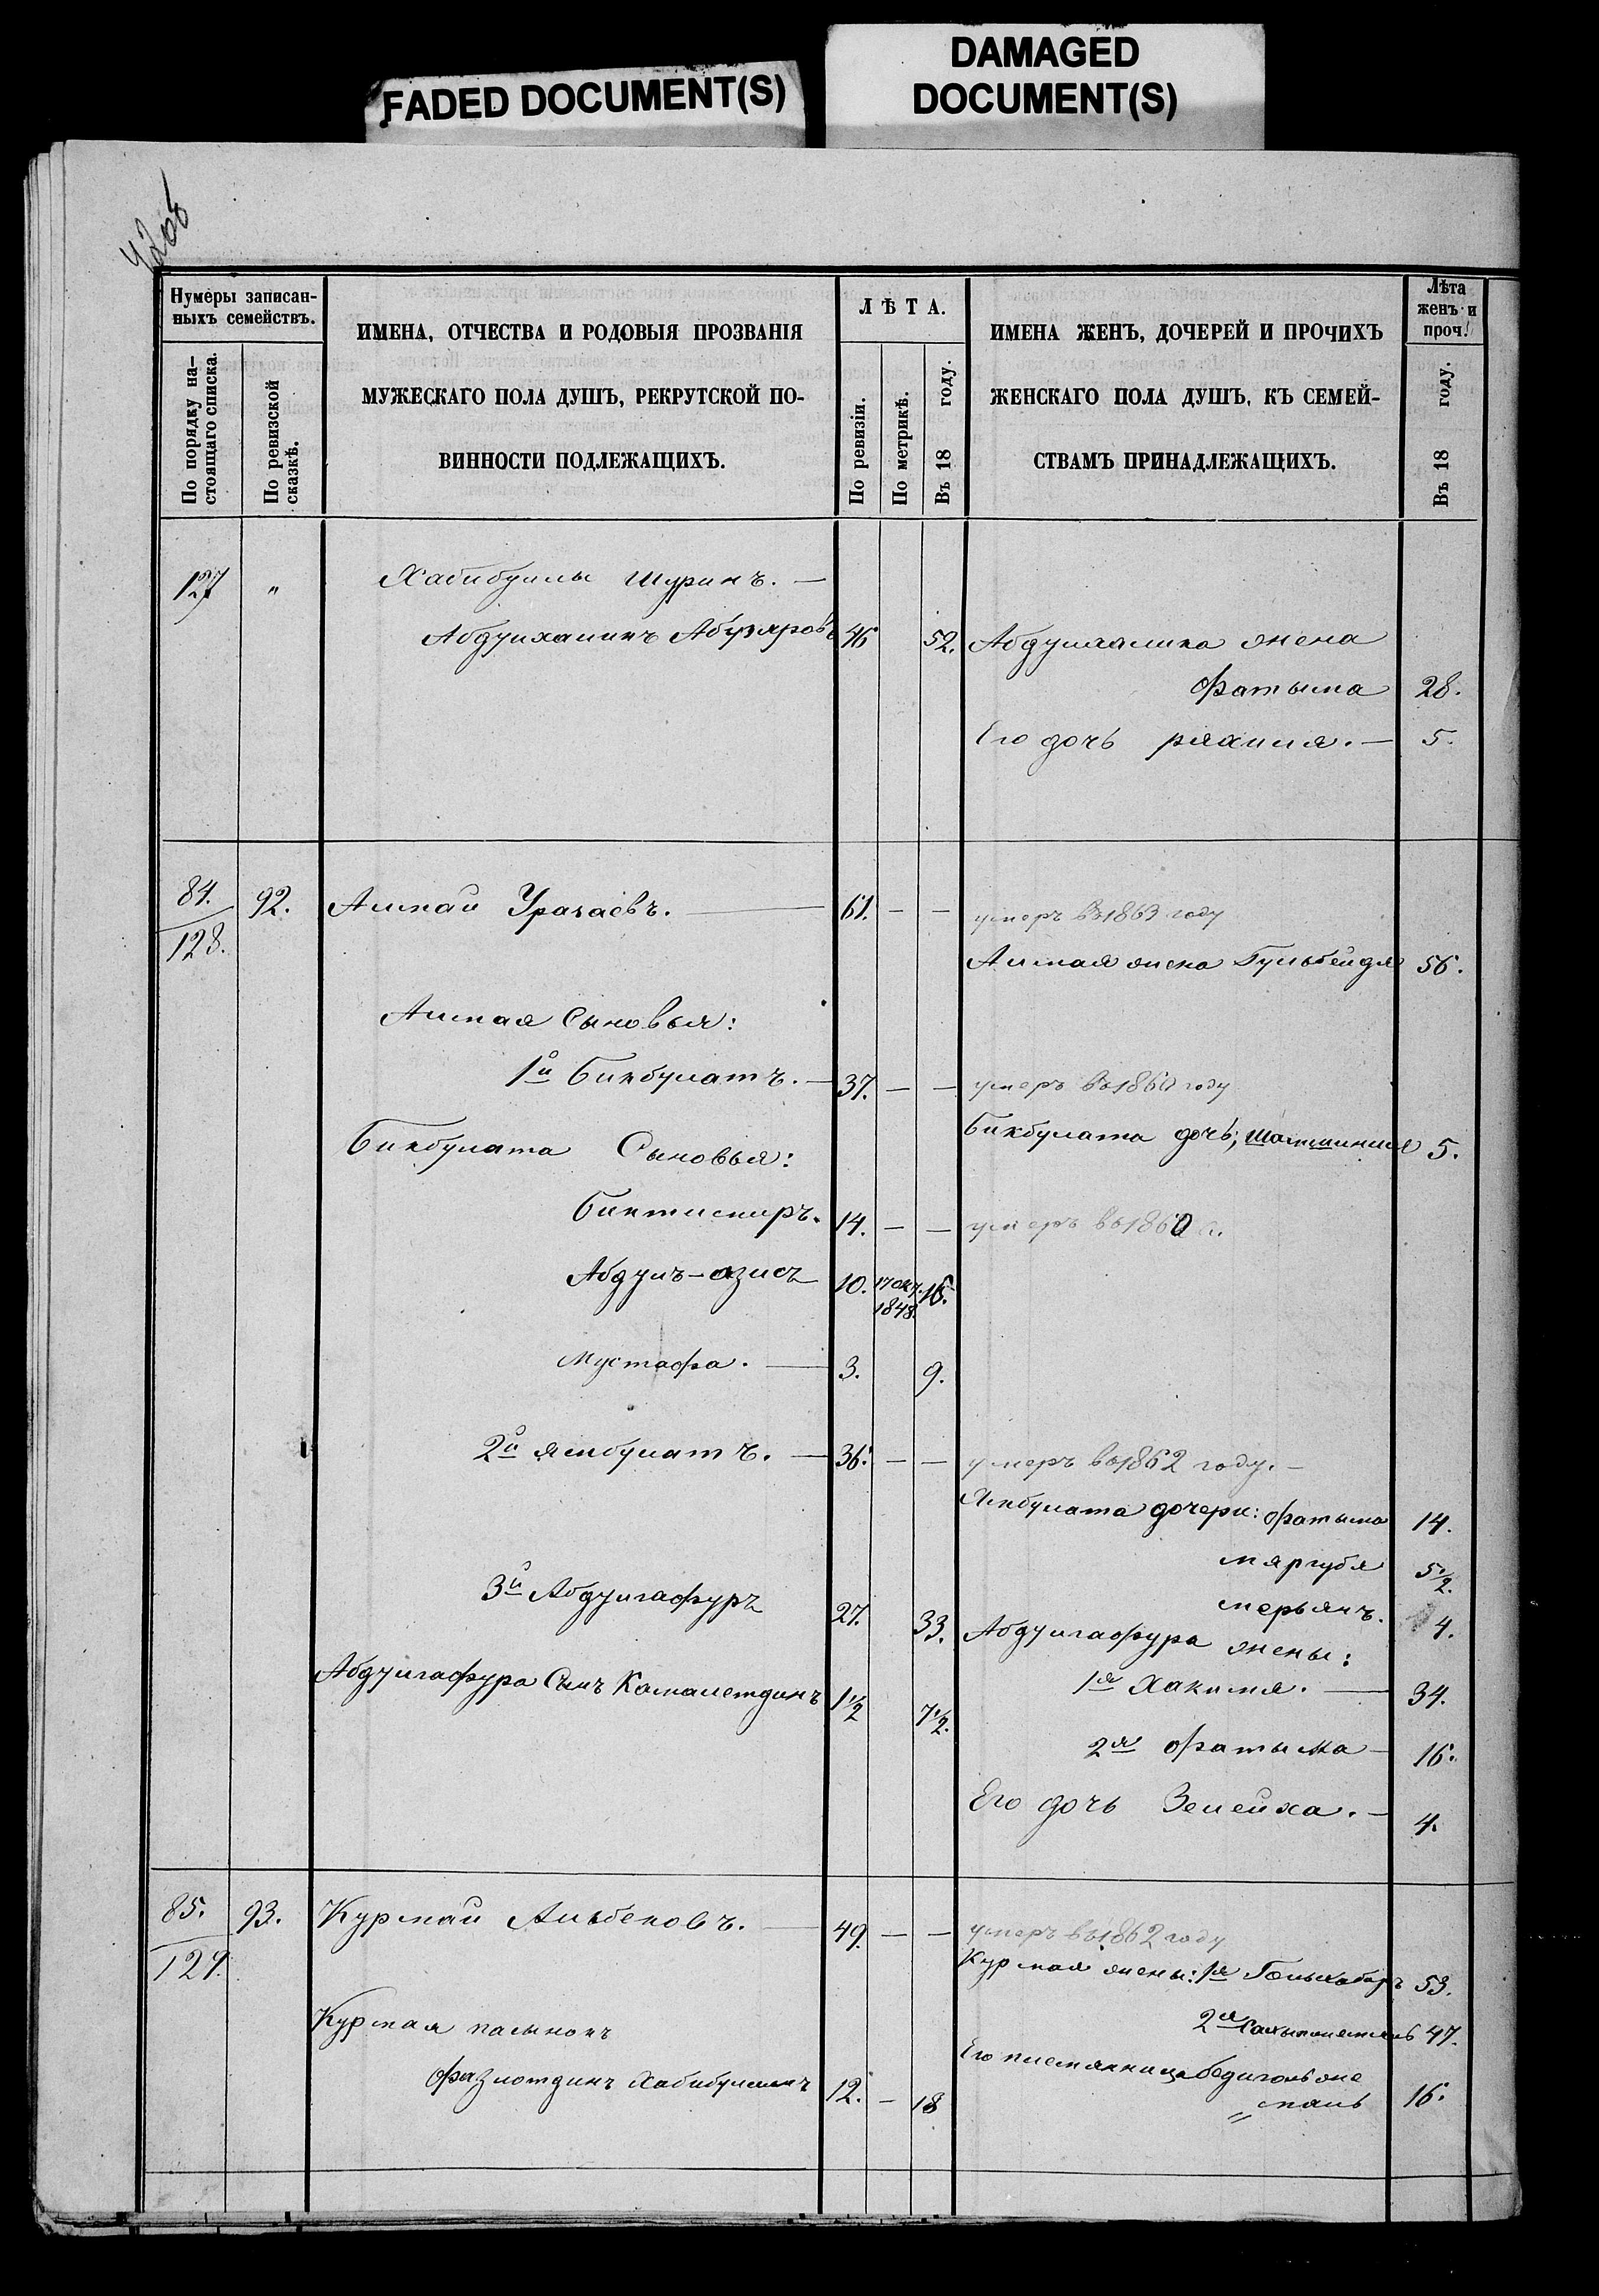 FADED DOCUMENT(S)
DAMAGED
DOCUMENT(S)
42об
Нумеры записан-
ныхъ семействъ.
По порядку на-
стоящаго списка.
По ревизской
сказкѣ.
ИМЕНА, ОТЧЕСТВА И РОДОВЫЯ ПРОЗВАНІЯ
МУЖЕСКАГО ПОЛА ДУШЪ, РЕКРУТСКОЙ ПО-
ВИННОСТИ ПОДЛЕЖАЩИХЪ.
ЛѢТА.
По ревизіи.
По метрикѣ.
Въ 18 году.
ИМЕНА ЖЕНЪ, ДОЧЕРЕЙ И ПРОЧИХЪ
ЖЕНСКАГО ПОЛА ДУШЪ, КЪ СЕМЕЙ-
СТВАМЪ ПРИНАДЛЕЖАЩИХЪ.
Лѣта
женъ и
проч.
Въ 18 году.
127 " Хабибуллы шуринъ. —
Абдулхаликъ Абузяровъ 46 52. Абдулхалика жена
Фатыма 28.
Его дочь рахиля. — 5.
84. 92. Алмай Уразаевъ. — 61. — — умеръ въ 1863 году
128. Алмая жена Гульбейдя 56.
Алмая Сыновья:
1й Бикбулатъ. — 37. — — умеръ въ 1860 году
Бикбулата Сыновья: Бикбулата дочь; 5.
Биктимиръ. 14. — — умеръ въ 1860 г.
Абдулъ-азисъ 10. 17 окт. 1848. 16.
Мустафа. — 3. 9.
2й якбулатъ. — 36. — — умеръ въ 1862 году. —
Якбулата дочери: Фатыма 14.
мяргубя 5 1/2.
3й Абдулгафуръ 27. 33. мерьямъ. 4.
Абдулгафура жены:
Абдулгафура Сынъ Камалетдинъ 1 1/2 7 1/2. 1я Хакимя. — 34.
2я Фатыма — 16.
Его дочь Зелейха. — 4.
85. 93. Курмай Альбековъ. — 49. — — умеръ въ 1862 году
129. Курмая жены: 1я 53.
Курмая пасынокъ 2я 47.
Его племянница
Фазлотдинъ Хабибуллинъ 12. — 18 16.